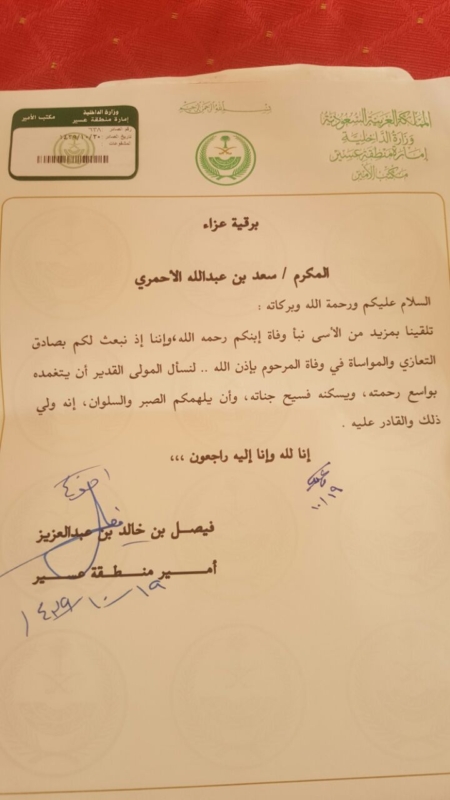 بسم الله الرحمن الرحيم
المملكة العربية السعودية
وزارة الداخلية
إمارة منطقة عسير
مكتب الأمير
وزارة الداخلية
إمارة منطقة عسير
مكتب الأمير
رقم الصادر
تاريخ الصادر
المشفوعات
برقية عزاء
المكرم / سعد بن عبدالله الأحمري
السلام عليكم ورحمة الله وبركاته :
تلقينا بمزيد من الأسى نبأ وفاة إبنكم رحمه الله،وإننا إذ نبعث لكم بصادق
التعازي والمواساة في وفاة المرحوم بإذن الله .. لنسأل المولى القدير أن يتغمده
بواسع رحمته، ويسكنه فسيح جناته، وأن يلهمكم الصبر والسلوان، إنه ولي
ذلك والقادر عليه .
إنا لله وإنا إليه راجعون ،،،
١٠/١٩
فيصل بن خالد بن عبدالعزيز
أمــــير منـطـقـة عســـــير
١٤٣٩/١٠/١٩